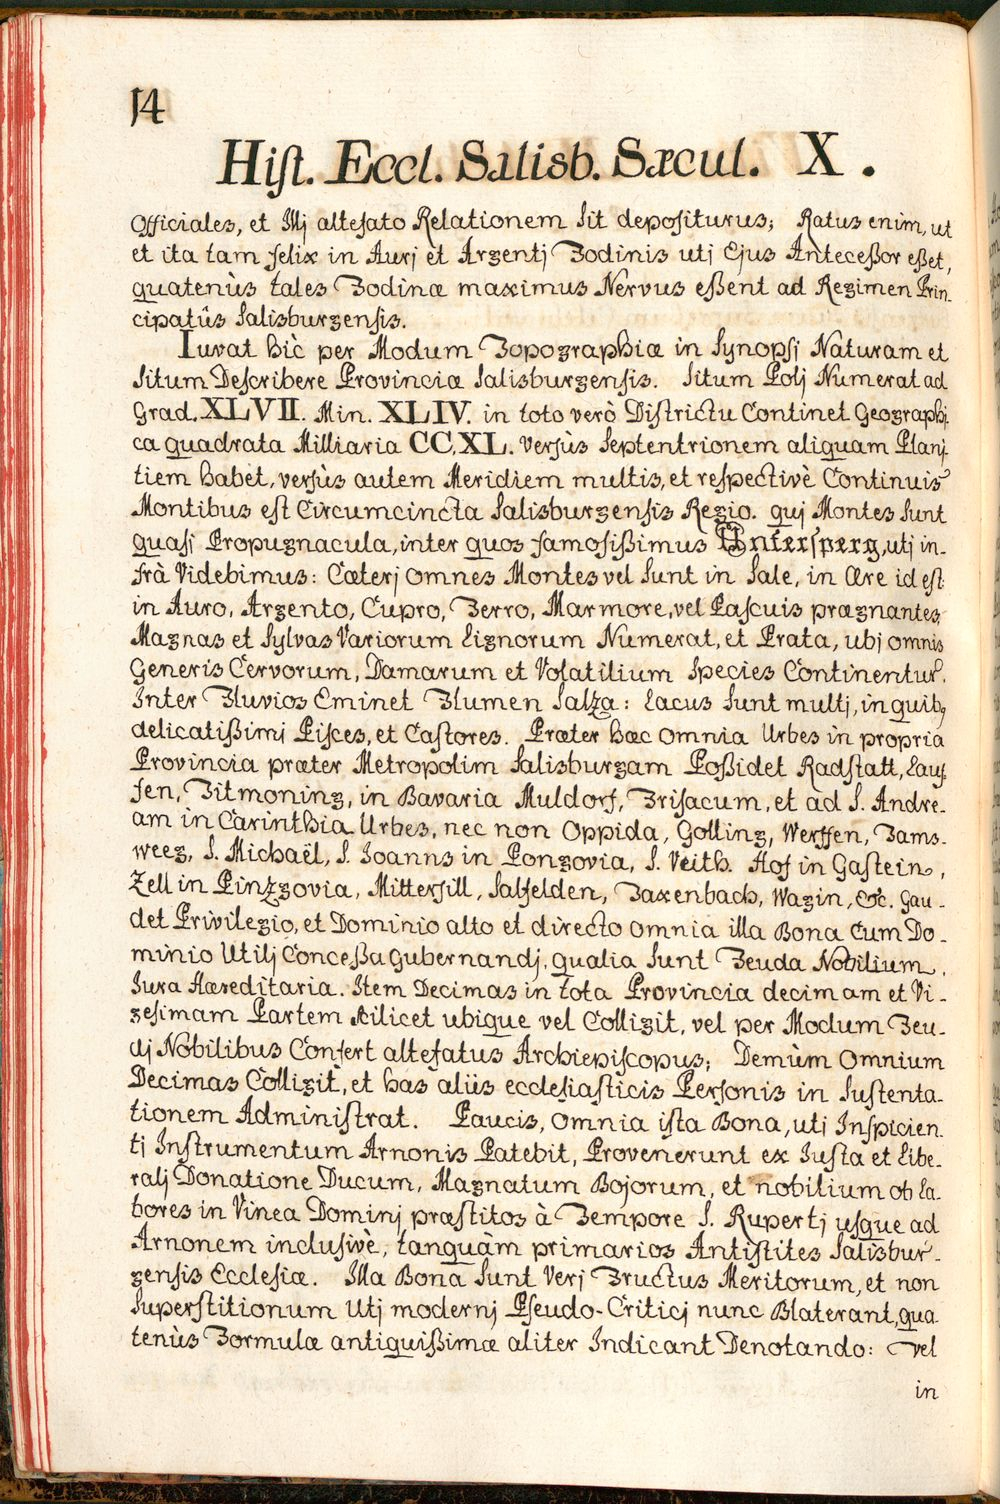 14
Hist. Eccl. Salisb. Sæcul. X.
Officiales, et Illj altefato Relationem sit depositurus; Ratus enim, ut
et ita tam felix in Aurj et Argentj Fodinis utj Ejus Antecessor esset,
quatenùs tales Fodinæ maximus Nervus essent ad Regimen Prin-
cipatûs Salisburgensis.
Iuvat hìc per Modum Topographiæ in Synopsj Naturam et
Situm Describere Provinciæ Salisburgensis. Situm Polj Numerat ad
Grad. XLVII. Min. XLIV. in toto verò Districtu Continet Geographi-
ca quadrata Milliaria CC.XL. Versùs Septentrionem aliquam Planj-
tiem habet, versùs autem Meridiem multis, et respectivè Continuis
Montibus est Circumcincta Salisburgensis Regio. quj Montes sunt
quasj Propugnacula, inter quos famosissimus Untersperg, utj in-
frà Videbimus: Cæterj omnes Montes vel sunt in Sale, in Ære id est
in Auro, Argento, Cupro, Ferro, Marmore, vel Pascuis prægnantes,
Magnas et Sylvas Variorum Lignorum Numerat, et Prata, ubj omnis
Generis Cervorum, Damarum et Volatilium Species Continentur.
Inter Fluvios Eminet Flumen Salza: Lacus sunt multj, in quibq
delicatissimj Pisces, et Castores. Præter hæc omnia Urbes in propria
Provincia præter Metropolim Salisburgam Possidet Radstatt, Lauf-
fen, Titmoning, in Bavaria Muldorf, Frisacum, et ad S. Andre-
am in Carinthia Urbes, nec non Oppida, Golling, Werffen, Tams-
weg, S. Michaël, S. Joanns in Pongovia, S. Veith. Hof in Gastein,
Zell in Pinzgovia, Mittersill, Salfelden, Taxenbach, Wagin, &c. Gau-
det Privilegio, et Dominio alto et directo omnia illa Bona cum Do-
minio Utilj Concessa Gubernandj, qualia sunt Feuda Nobilium,
Iura Hæreditaria. Item Decimas in tota Provincia decimam et Vi-
gesimam Partem scilicet ubique vel Colligit, vel per Modum Feu-
dj Nobilibus Confert altefatus Archiepiscopus; Demùm omnium
Decimas Colligit, et has aliis ecclesiasticis Personis in Sustenta-
tionem Administrat. Paucis, omnia ista Bona, utj Inspicien-
tj Instrumentum Arnonis Patebit, Provenerunt ex Iusta et Libe-
ralj Donatione Ducum, Magnatum Bojorum, et nobilium ob La-
bores in Vinea Dominj præstitos à Tempore S. Rupertj usque ad
Arnonem inclusivè, tanquàm primarios Antistites Salisbur-
gensis Ecclesiæ. Illa Bona sunt Verj Fructus Meritorum, et non
Superstitionum Utj modernj Pseudo-Criticj nunc Blaterant, qua-
tenùs Formulæ antiquissimæ aliter Indicant Denotando: vel
in